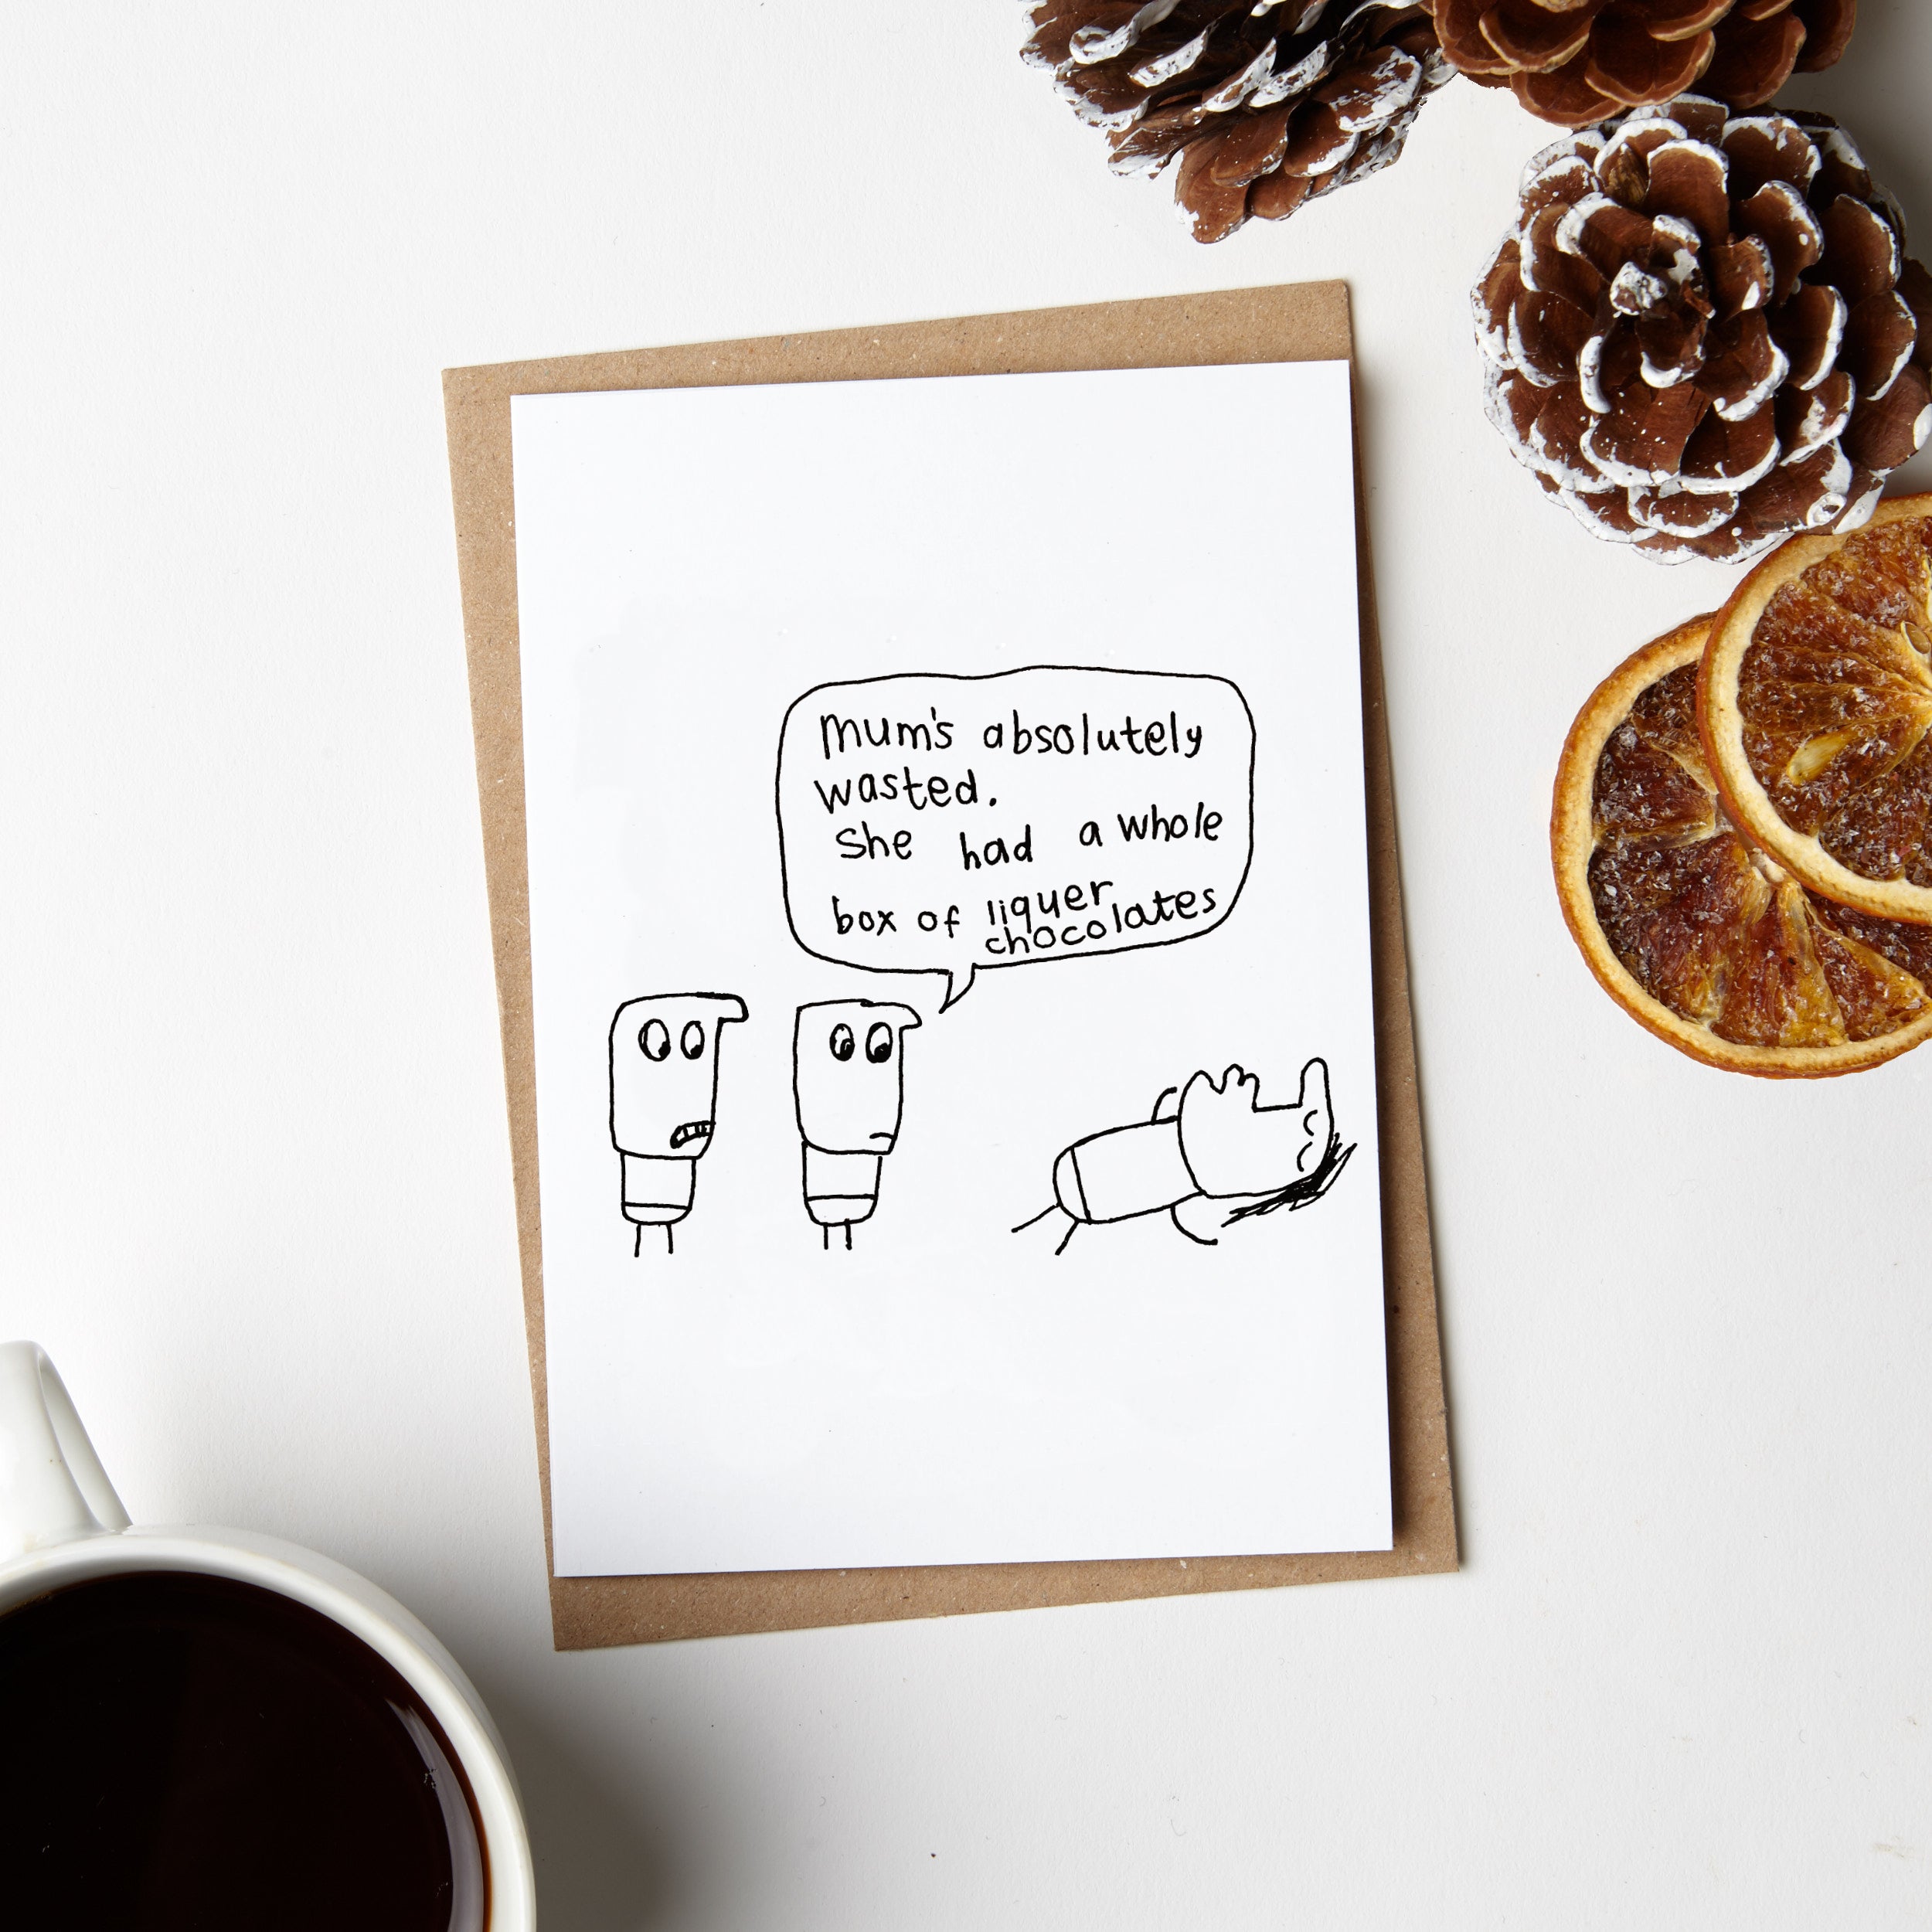 Mum's absolutely
wasted.
She had a whole
box of liquer
chocolates